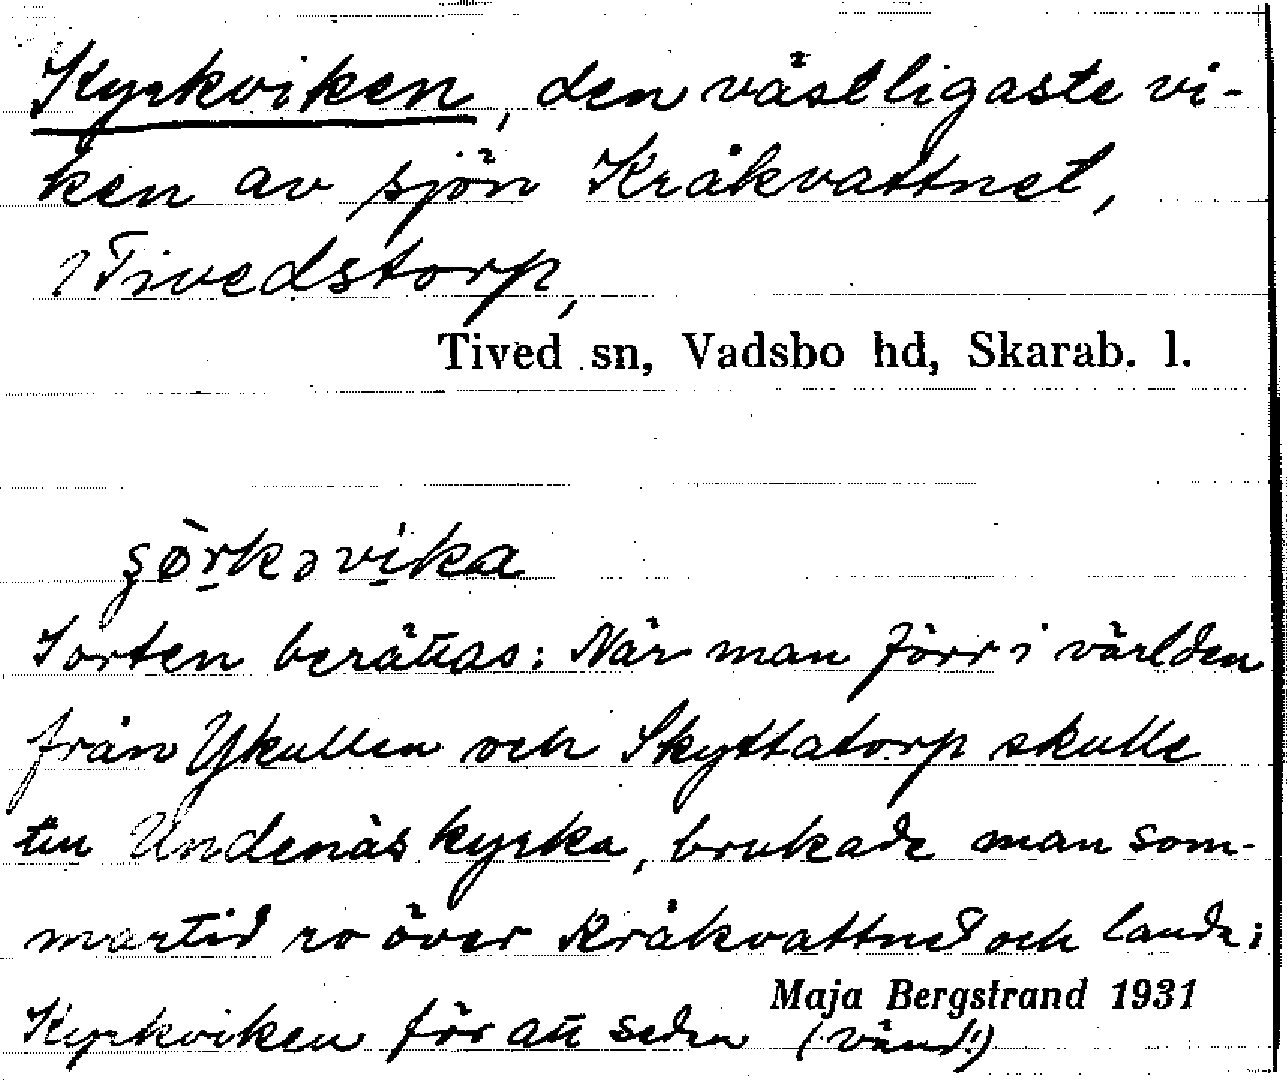 Kyrkviken, den västligaste vi-
ken av sjön Kråkvattnet,
i Tivedstorp,
Tived sn, Vadsbo hd, Skarab. l.
I orten berättas: När man förr i världen
från Ykullen och Skyttatorp skulle
till Undenäs kyrka, brukade man som-
martid ro över Kråkvattnet och landa i
Maja Bergstrand 1931
Kyrkviken för att sedan (vänd!)